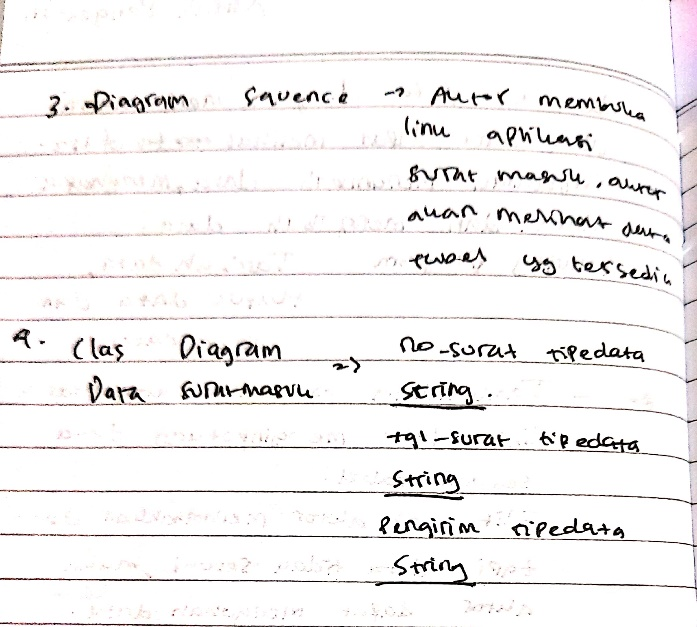 3. Diagram Squence -> Autor membuka
link aplikasi
surat masuk, autor
akan melihat data
tersedia
4. Clas Diagram => no_surat tipedata
Data suratmasuk String.
tgl_surat tipedata
String
Pengirim tipedata
String